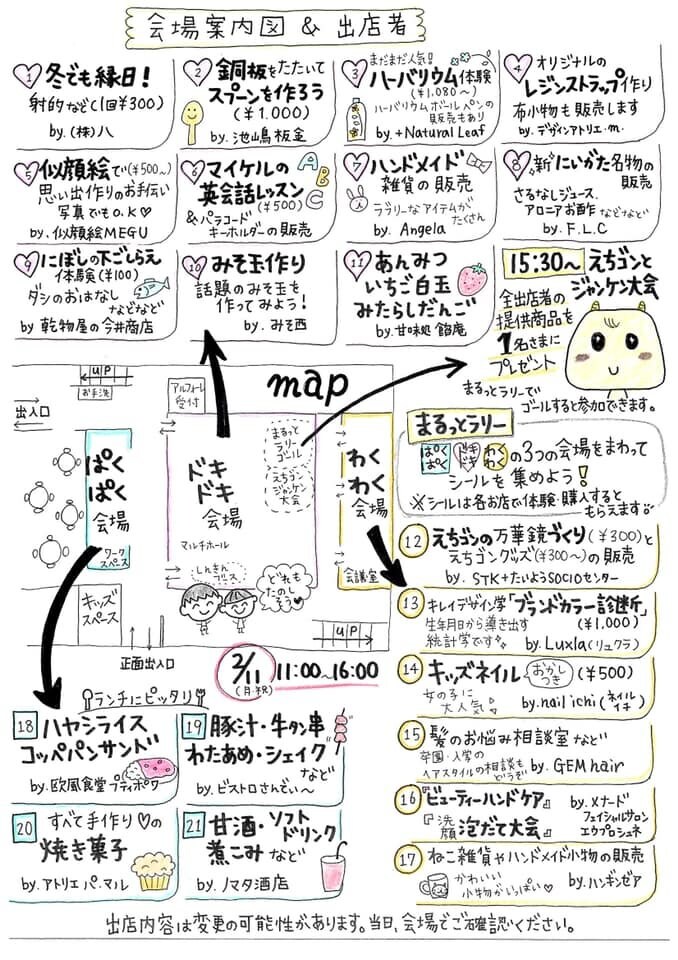 会場案内図 & 出店者
1 冬でも縁日!
射的など(1回¥300)
by.(株)八
2 銅板をたたいて
スプーンを作ろう
(¥1.000)
by. 池山鳥板金
3 まだまだ人気!
ハーバリウム体験
(¥1.080〜)
ハーバリウムボールペンの
販売もあり
by. +Natural Leaf
4 オリジナルの
レジンストラップ作り
布小物も販売します
by. デザインアトリエ・m.
5 似顔絵で(¥500〜)
思い出作りのお手伝い
写真でもO.K♡
by. 似顔絵MEGU
6 マイケルの
英会話レッスン
(¥500)
&パラコード
キーホルダーの販売
A B C
7 ハンドメイド
雑貨の販売
ラブリーなアイテムが
たくさん
by. Angela
8 新にいがた名物の
販売
さるなしジュース.
アロニアお酢 などなど
by. F.L.C
9 にぼしの下ごしらえ
体験(¥100)
ダシのおはなし
などなど
by 乾物屋の今井商店
10 みそ玉作り
話題のみそ玉を
作ってみよう!
by. みそ西
11 あんみつ
いちご白玉
みたらしだんご
by.甘味処 餡庵
15:30〜 えちゴンと
ジャンケン大会
全出店者の
提供商品を
1名さまに
プレゼント
まるっとラリーで
ゴールすると参加できます。
map
UP
お手洗
出入口
アルフォーレ
受付
ぱく
ぱく
会場
ワーク
スペース
ドキ
ドキ
会場
マルチホール
まるっと
ラリー
ゴール
えちゴン
ジャンケン
大会
わく
わく
会場
会議室
しんきん
ブース
どれも
たのし
そう♥
キッズ
スペース
正面出入口
UP
2/11
(月・祝)
11:00〜16:00
まるっとラリー
ぱくぱく ドキドキ わくわく の3つの会場をまわって
シールを集めよう!
※シールは各お店で体験・購入すると
もらえます♡
12 えちゴンの万華鏡づくり(¥300)と
えちゴングッズ(¥300〜)の販売
by. STK+たいようSOCIOセンター
13 キレイデザイン学「ブランドカラー診断」
生年月日から導き出す
統計学です
(¥1,000)
by. Luxla(リュクラ)
14 キッズネイル おかしつき (¥500)
女の子に
大人気♪
by.nail ichi(ネイルイチ)
15 髪のお悩み相談室など
卒園・入学の
ヘアスタイルの相談も
どうぞ
by. GEM hair
16 『ビューティーハンドケア』
『洗顔泡だて大会』
by. メナード
フェイシャルサロン
エウプロシュネ
17 ねこ雑貨やハンドメイド小物の販売
かわいい
小物がいっぱい♡
by. ハンギンゼア
ランチにピッタリ
18 ハヤシライス
コッペパンサンド
by.欧風食堂 プティポワ
19 豚汁・牛タン串
わたあめ・シェイク
など
by. ビストロさんでぃ〜
20 すべて手作り♡の
焼き菓子
by. アトリエ パ・マル
21 甘酒・ソフト
ドリンク
煮こみ など
by. ノマタ酒店
出店内容は変更の可能性があります。当日、会場でご確認ください。